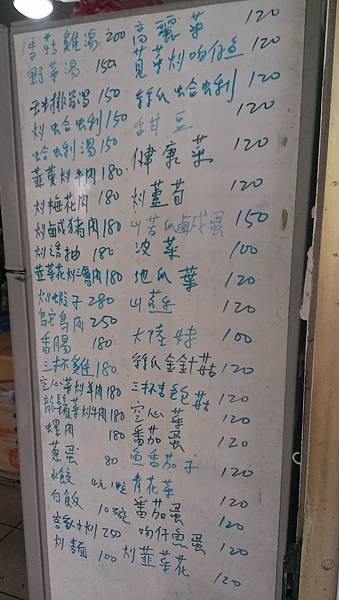 香菇雞湯 200
野菜湯 150
玉米排骨湯 150
炒蛤蜊 150
蛤蜊湯 150
韮黃炒牛肉 180
炒梅花肉 180
炒鹹豬肉 180
炒透抽 180
韮菜花炒鹽肉 180
炒蝦子 280
鴕鳥肉 250
香腸 180
三杯雞 180
空心菜炒羊肉 180
龍鬚菜炒牛肉 180
螺肉 180
蔥蛋 80
水餃 4元1粒
白飯 10元
客家小炒 250
炒麵 100
高麗菜 120
莧菜炒吻仔魚 120
絲瓜蛤蜊 120
甜豆 120
健康菜 120
炒蘆荀 120
山苦瓜鹹蛋 150
波菜 100
地瓜葉 120
山蘇 120
大陸妹 100
絲瓜金針菇 120
三杯杏包菇 120
空心菜 120
番茄蛋 120
魚香茄子 120
青花菜 120
番茄蛋 120
吻仔魚蛋 120
炒韮菜花 120